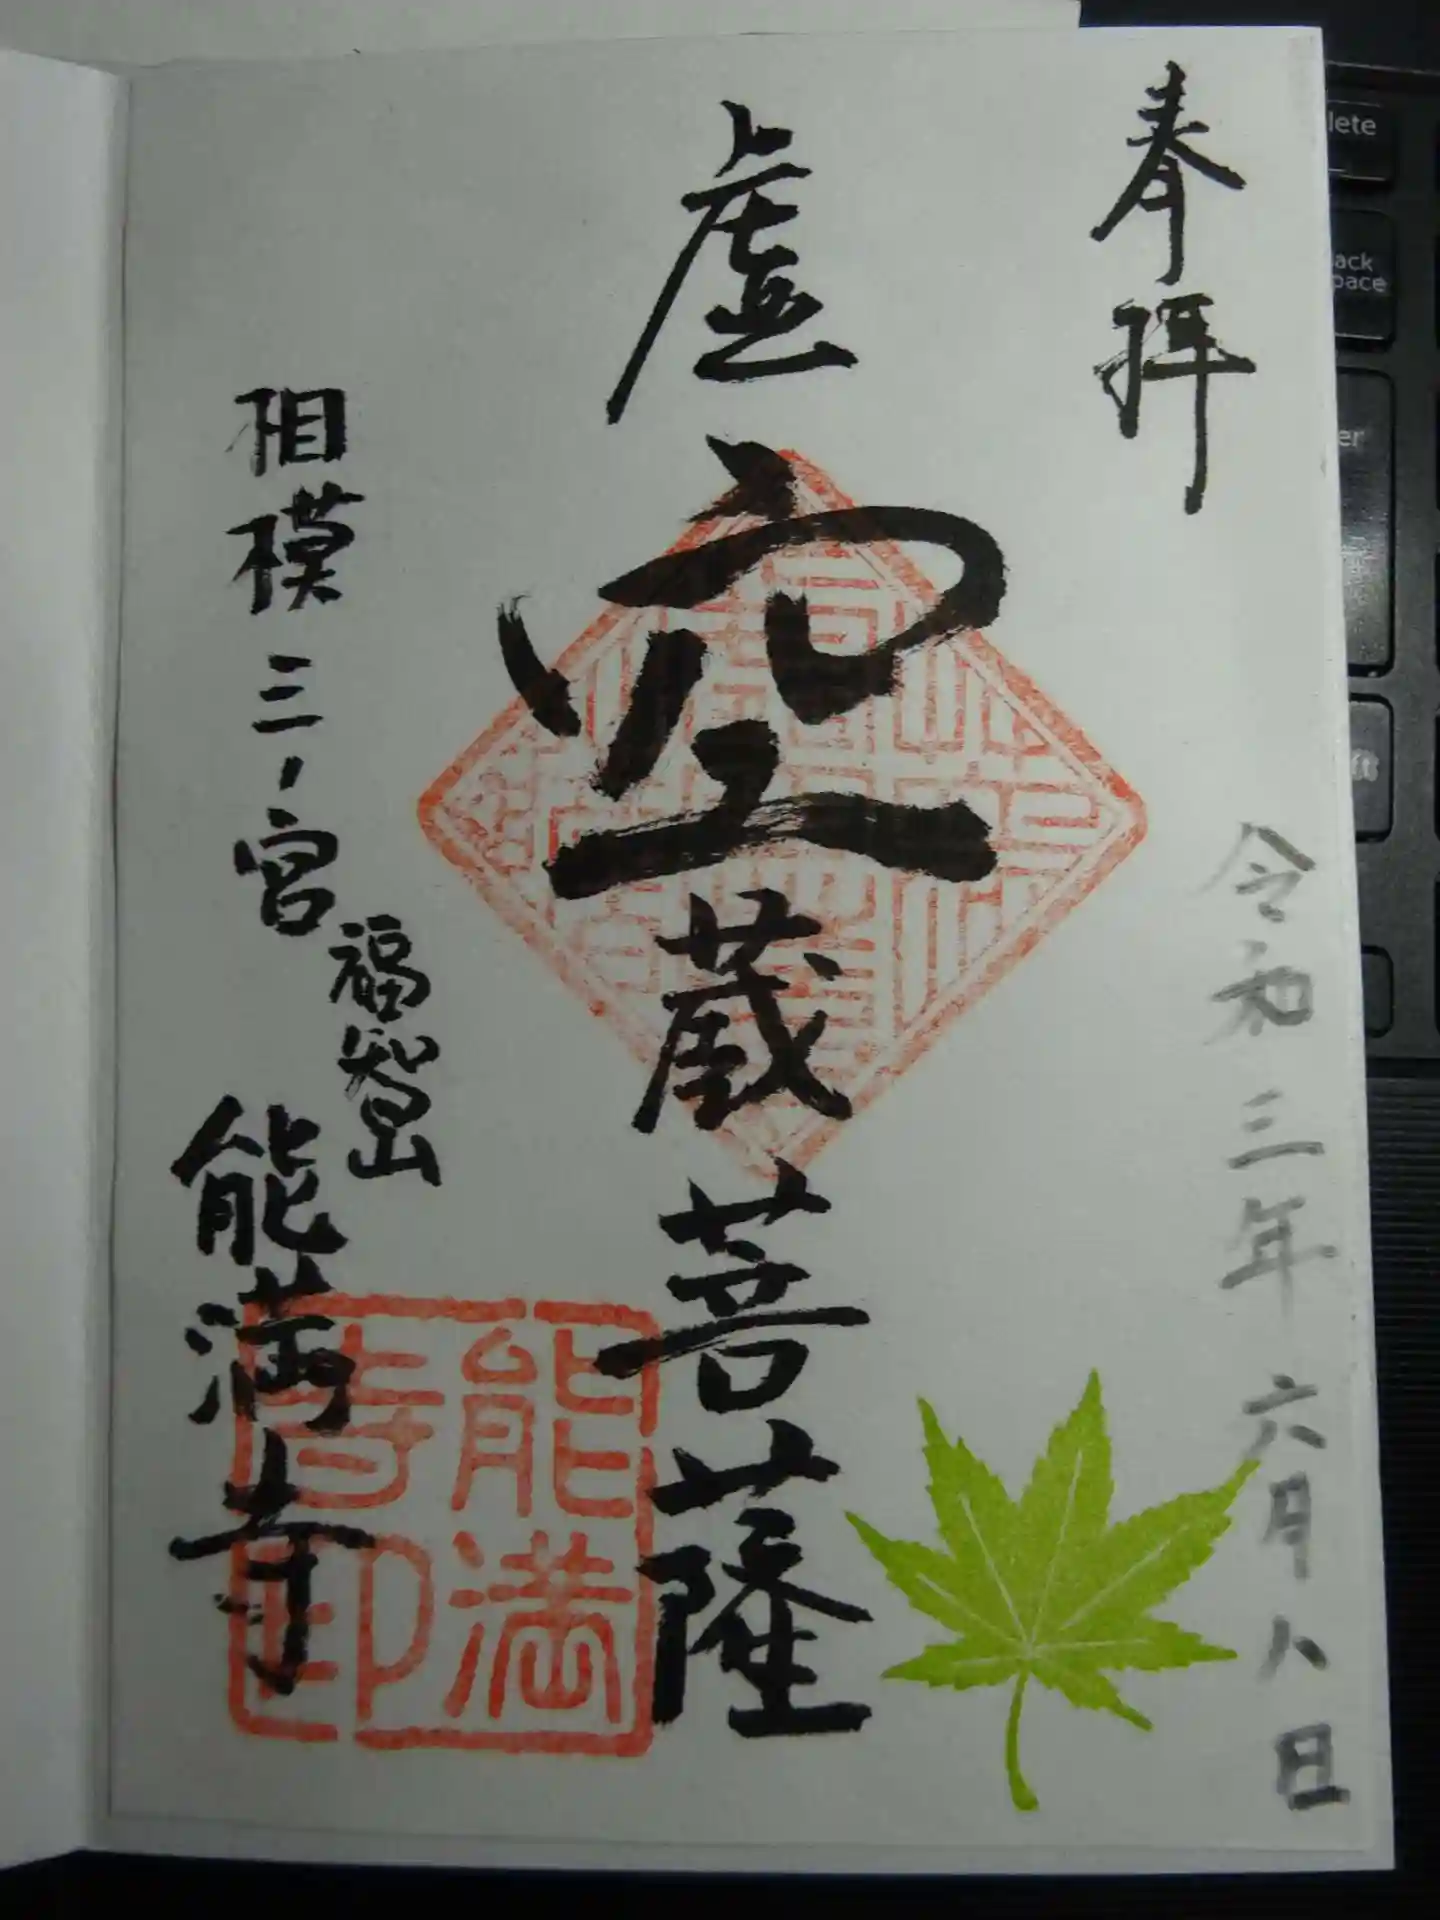 奉拝
令和三年六月八日
虚空蔵菩薩
福智山
相模三ノ宮
能満寺
能満寺印
lete
ack
pace
er
ft